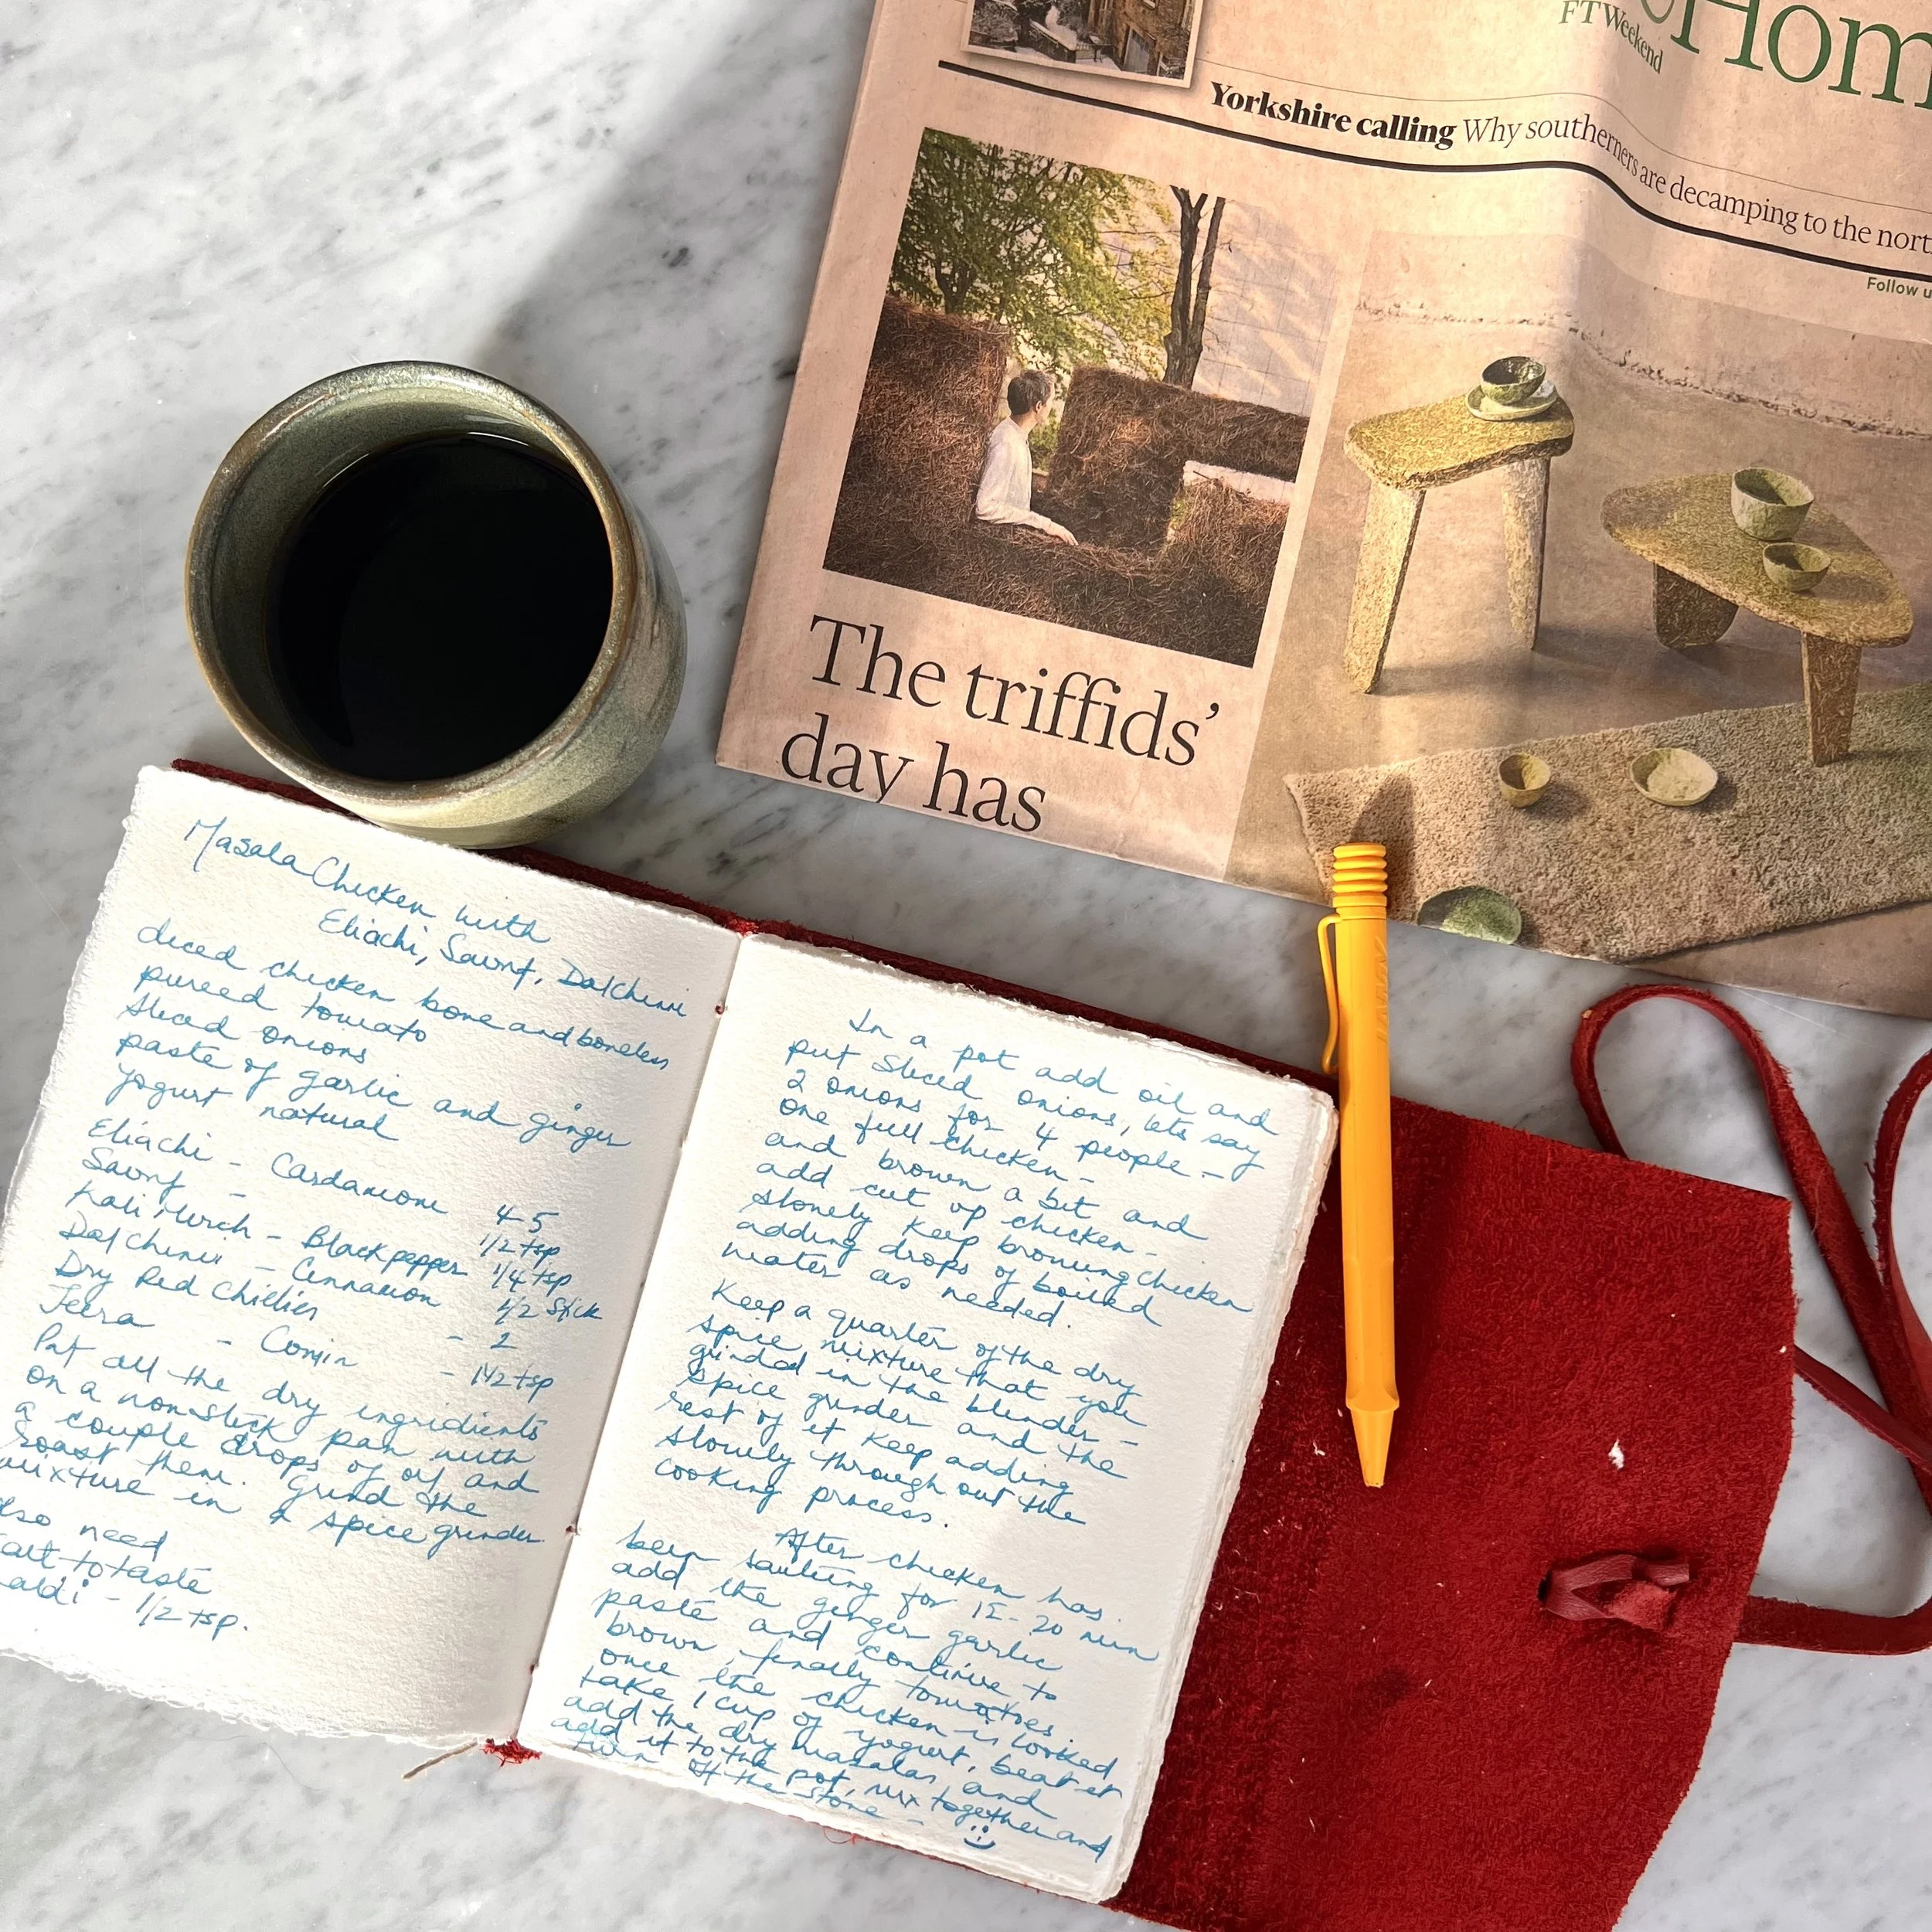 FTWeekend
Hom
Yorkshire calling Why southerners are decamping to the nort
Follow u
The triffids'
day has
LAMY
Masala Chicken with
Eliachi, Saunf, Dalchini
diced chicken bone and boneless
pureed tomato
Sliced onions
paste of garlic and ginger
yogurt natural
Eliachi - Cardamom 4-5
Saunf - 1/2 tsp
Kali Mirch - Black pepper 1/4 tsp
Dalchini - Cinnamon 1/2 stick
Dry Red Chillies - 2
Jeera - Comin - 1 1/2 tsp
Put all the dry ingridients
on a nonstick pan with
a couple drops of oil and
roast them. Grind the
mixture in a spice grinder
also need
salt to taste
aldi - 1/2 tsp.
In a pot add oil and
put sliced onions, lets say
2 onions for 4 people -
one full chicken -
and brown a bit and
add cut up chicken -
slowly keep browning chicken
adding drops of boiled
water as needed.
Keep a quarter of the dry
spice mixture that you
grinded in the blender -
spice grinder and the
rest of it keep adding
slowly through out the
cooking process.
After chicken has
been sauteing for 15-20 min
add the ginger garlic
paste and continue to
brown, finally tomatoes.
once the chicken is cooked
take 1 cup of yogurt, beat it
add the dry masalas, and
add it to the pot, mix together and
turn off the stove -